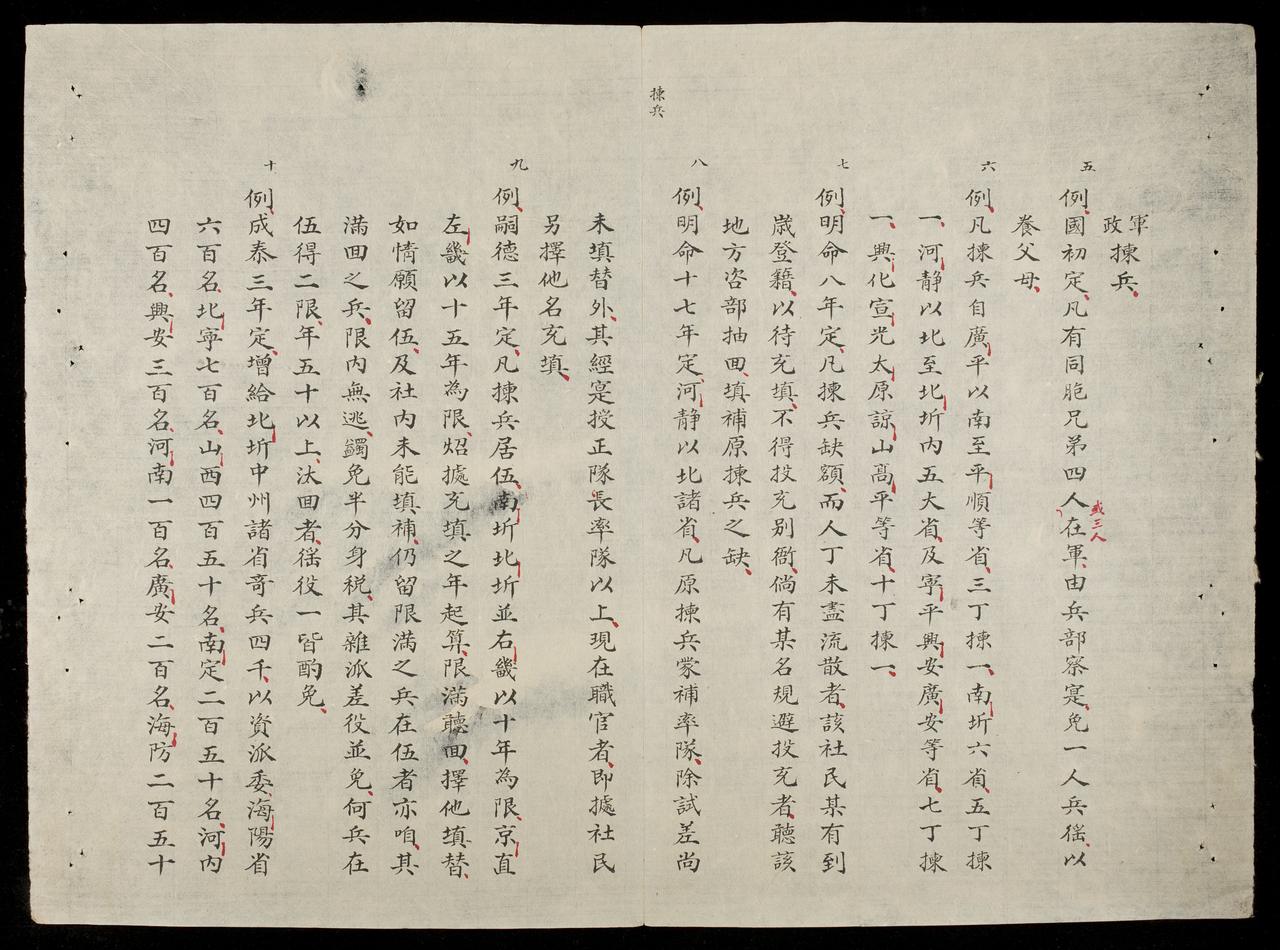 揀兵
軍政 揀兵
五
例國初定凡有同胞兄弟四人在軍由兵部察寔免一人兵徭以
或三人
養父母
六
例凡揀兵自廣平以南至平順等省三丁揀一南圻六省五丁揀
一河靜以北至北圻內五大省及寧平興安廣安等省七丁揀
一興化宣光太原諒山高平等省十丁揀一
七
例明命八年定凡揀兵缺額而人丁未盡流散者該社民某有到
歲登籍以待充填不得投充别衙倘有某名規避投充者聽該
地方咨部抽回填補原揀兵之缺
八
例明命十七年定河靜以北諸省凡原揀兵蒙補率隊除試差尚
未填替外其經寔授正隊長率隊以上現在職官者即據社民
另擇他名充填
九
例嗣德三年定凡揀兵居伍南圻北圻並右畿以十年為限京直
左畿以十五年為限炤據充填之年起算限滿聽回擇他填替
如情願留伍及社内未能填補仍留限滿之兵在伍者亦咱其
滿回之兵限內無逃蠲免半分身税其雜派差役並免何兵在
伍得二限年五十以上汰回者徭役一皆酌免
十
例成泰三年定增給北圻中州諸省奇兵四千以資派委海陽省
六百名北寧七百名山西四百五十名南定二百五十名河內
四百名興安三百名河南一百名廣安二百名海防二百五十